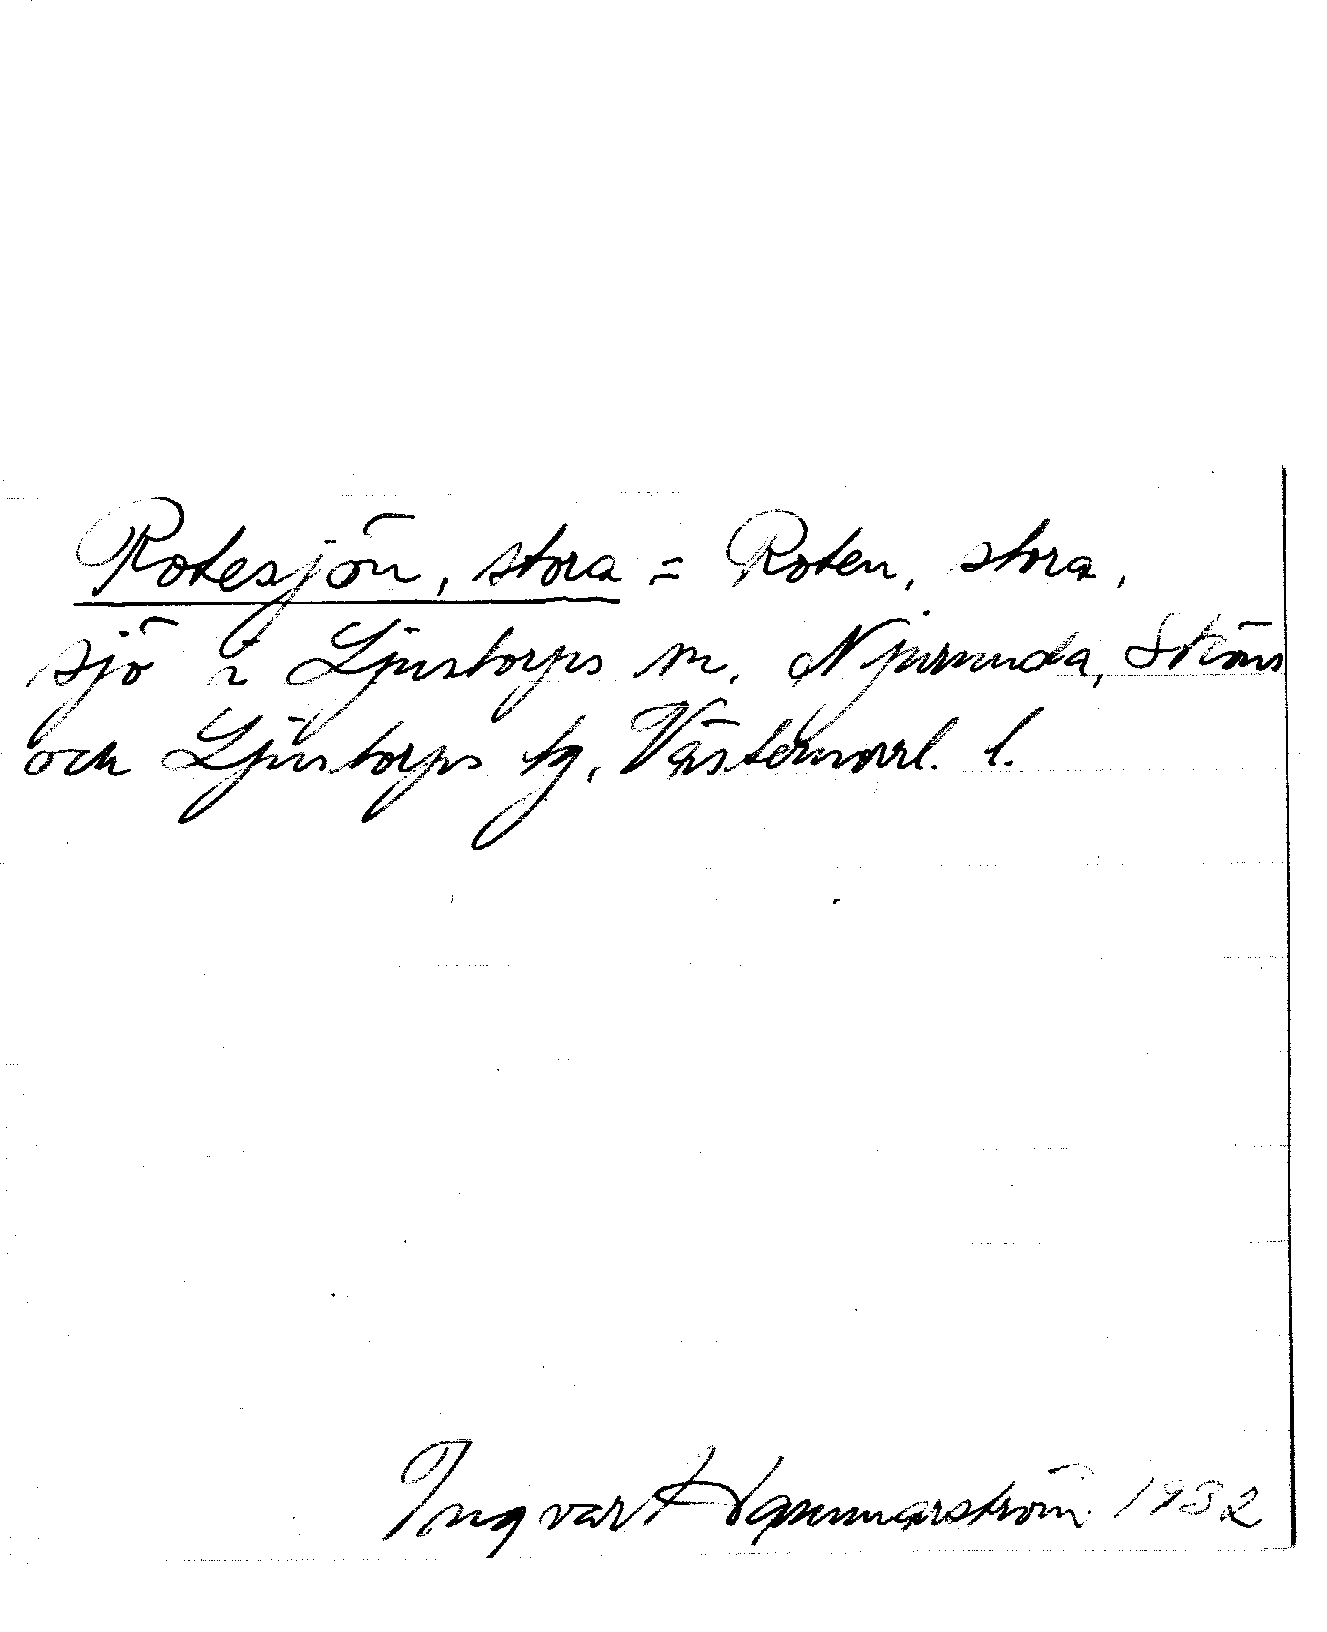 Rotesjön, stora = Roten, stora,
sjö i Ljustorps sn. Njurunda, Sköns
och Ljustorps tg, Västernorrl. l.
Ingvar Hammarström 1932